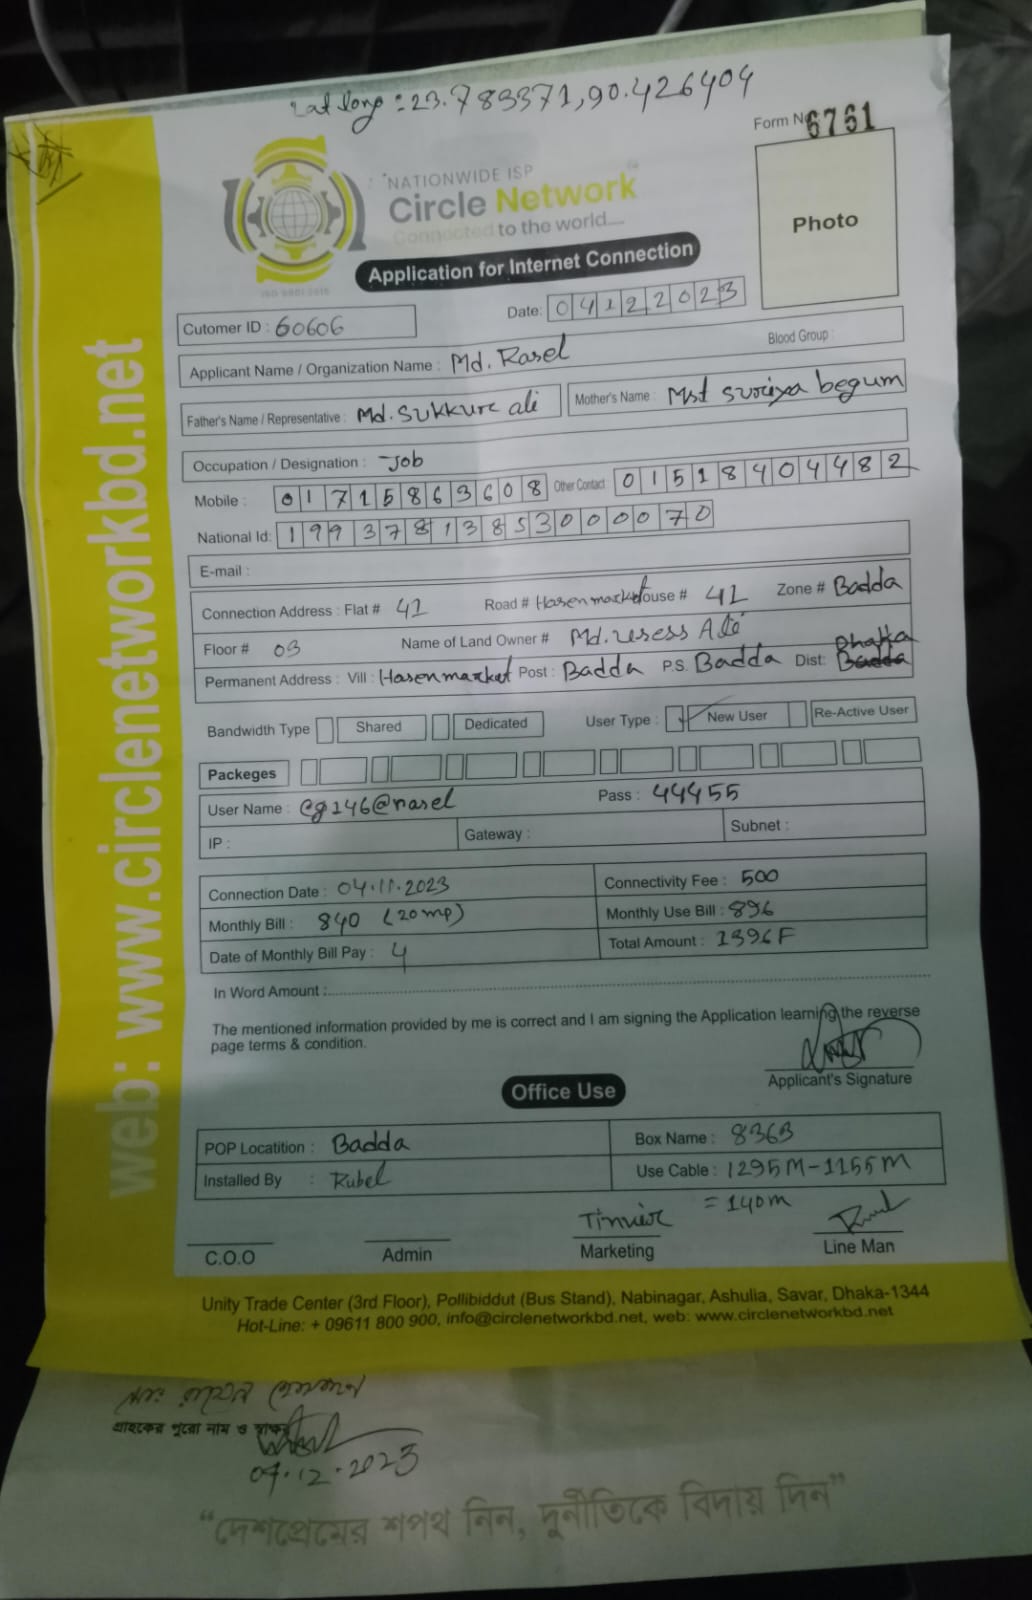 Lat long : 23.783371, 90.426404
Form No 6761
NATIONWIDE ISP
Circle Network
Connected to the world....
ISO 9001:2015
Photo
Application for Internet Connection
Date: 04122023
Cutomer ID : 60606
Applicant Name / Organization Name : Md. Rasel Blood Group :
Father's Name / Representative : Md. Sukkur ali Mother's Name : Mst suriya begum
Occupation / Designation : Job
Mobile : 01715863608 Other Contact 01518404482
National Id: 19937813853000070
E-mail :
Connection Address : Flat # 41 Road # Hasen market House # 41 Zone # Badda
Floor # 03 Name of Land Owner # Md. Ali
Permanent Address : Vill : Hasen market Post : Badda P.S. Badda Dist: Dhaka
Bandwidth Type Shared Dedicated User Type : New User Re-Active User
Packeges
User Name : cg146@rasel Pass : 44455
IP : Gateway : Subnet :
Connection Date : 04.11.2023 Connectivity Fee : 500
Monthly Bill : 840 (20 mp) Monthly Use Bill : 896
Date of Monthly Bill Pay : 4 Total Amount : 1396
In Word Amount :
The mentioned information provided by me is correct and I am signing the Application learning the reverse
page terms & condition.
Applicant's Signature
Office Use
POP Locatition : Badda Box Name : 8363
Installed By : Rubel Use Cable : 1295M-1155M
= 140m
C.O.O Admin Marketing Line Man
Unity Trade Center (3rd Floor), Pollibiddut (Bus Stand), Nabinagar, Ashulia, Savar, Dhaka-1344
Hot-Line: + 09611 800 900, info@circlenetworkbd.net, web: www.circlenetworkbd.net
web: www.circlenetworkbd.net
মোঃ রাসেল
গ্রাহকের পুরো নাম ও স্বাক্ষর
04.12.2023
“দেশপ্রেমের শপথ নিন, দুর্নীতিকে বিদায় দিন”